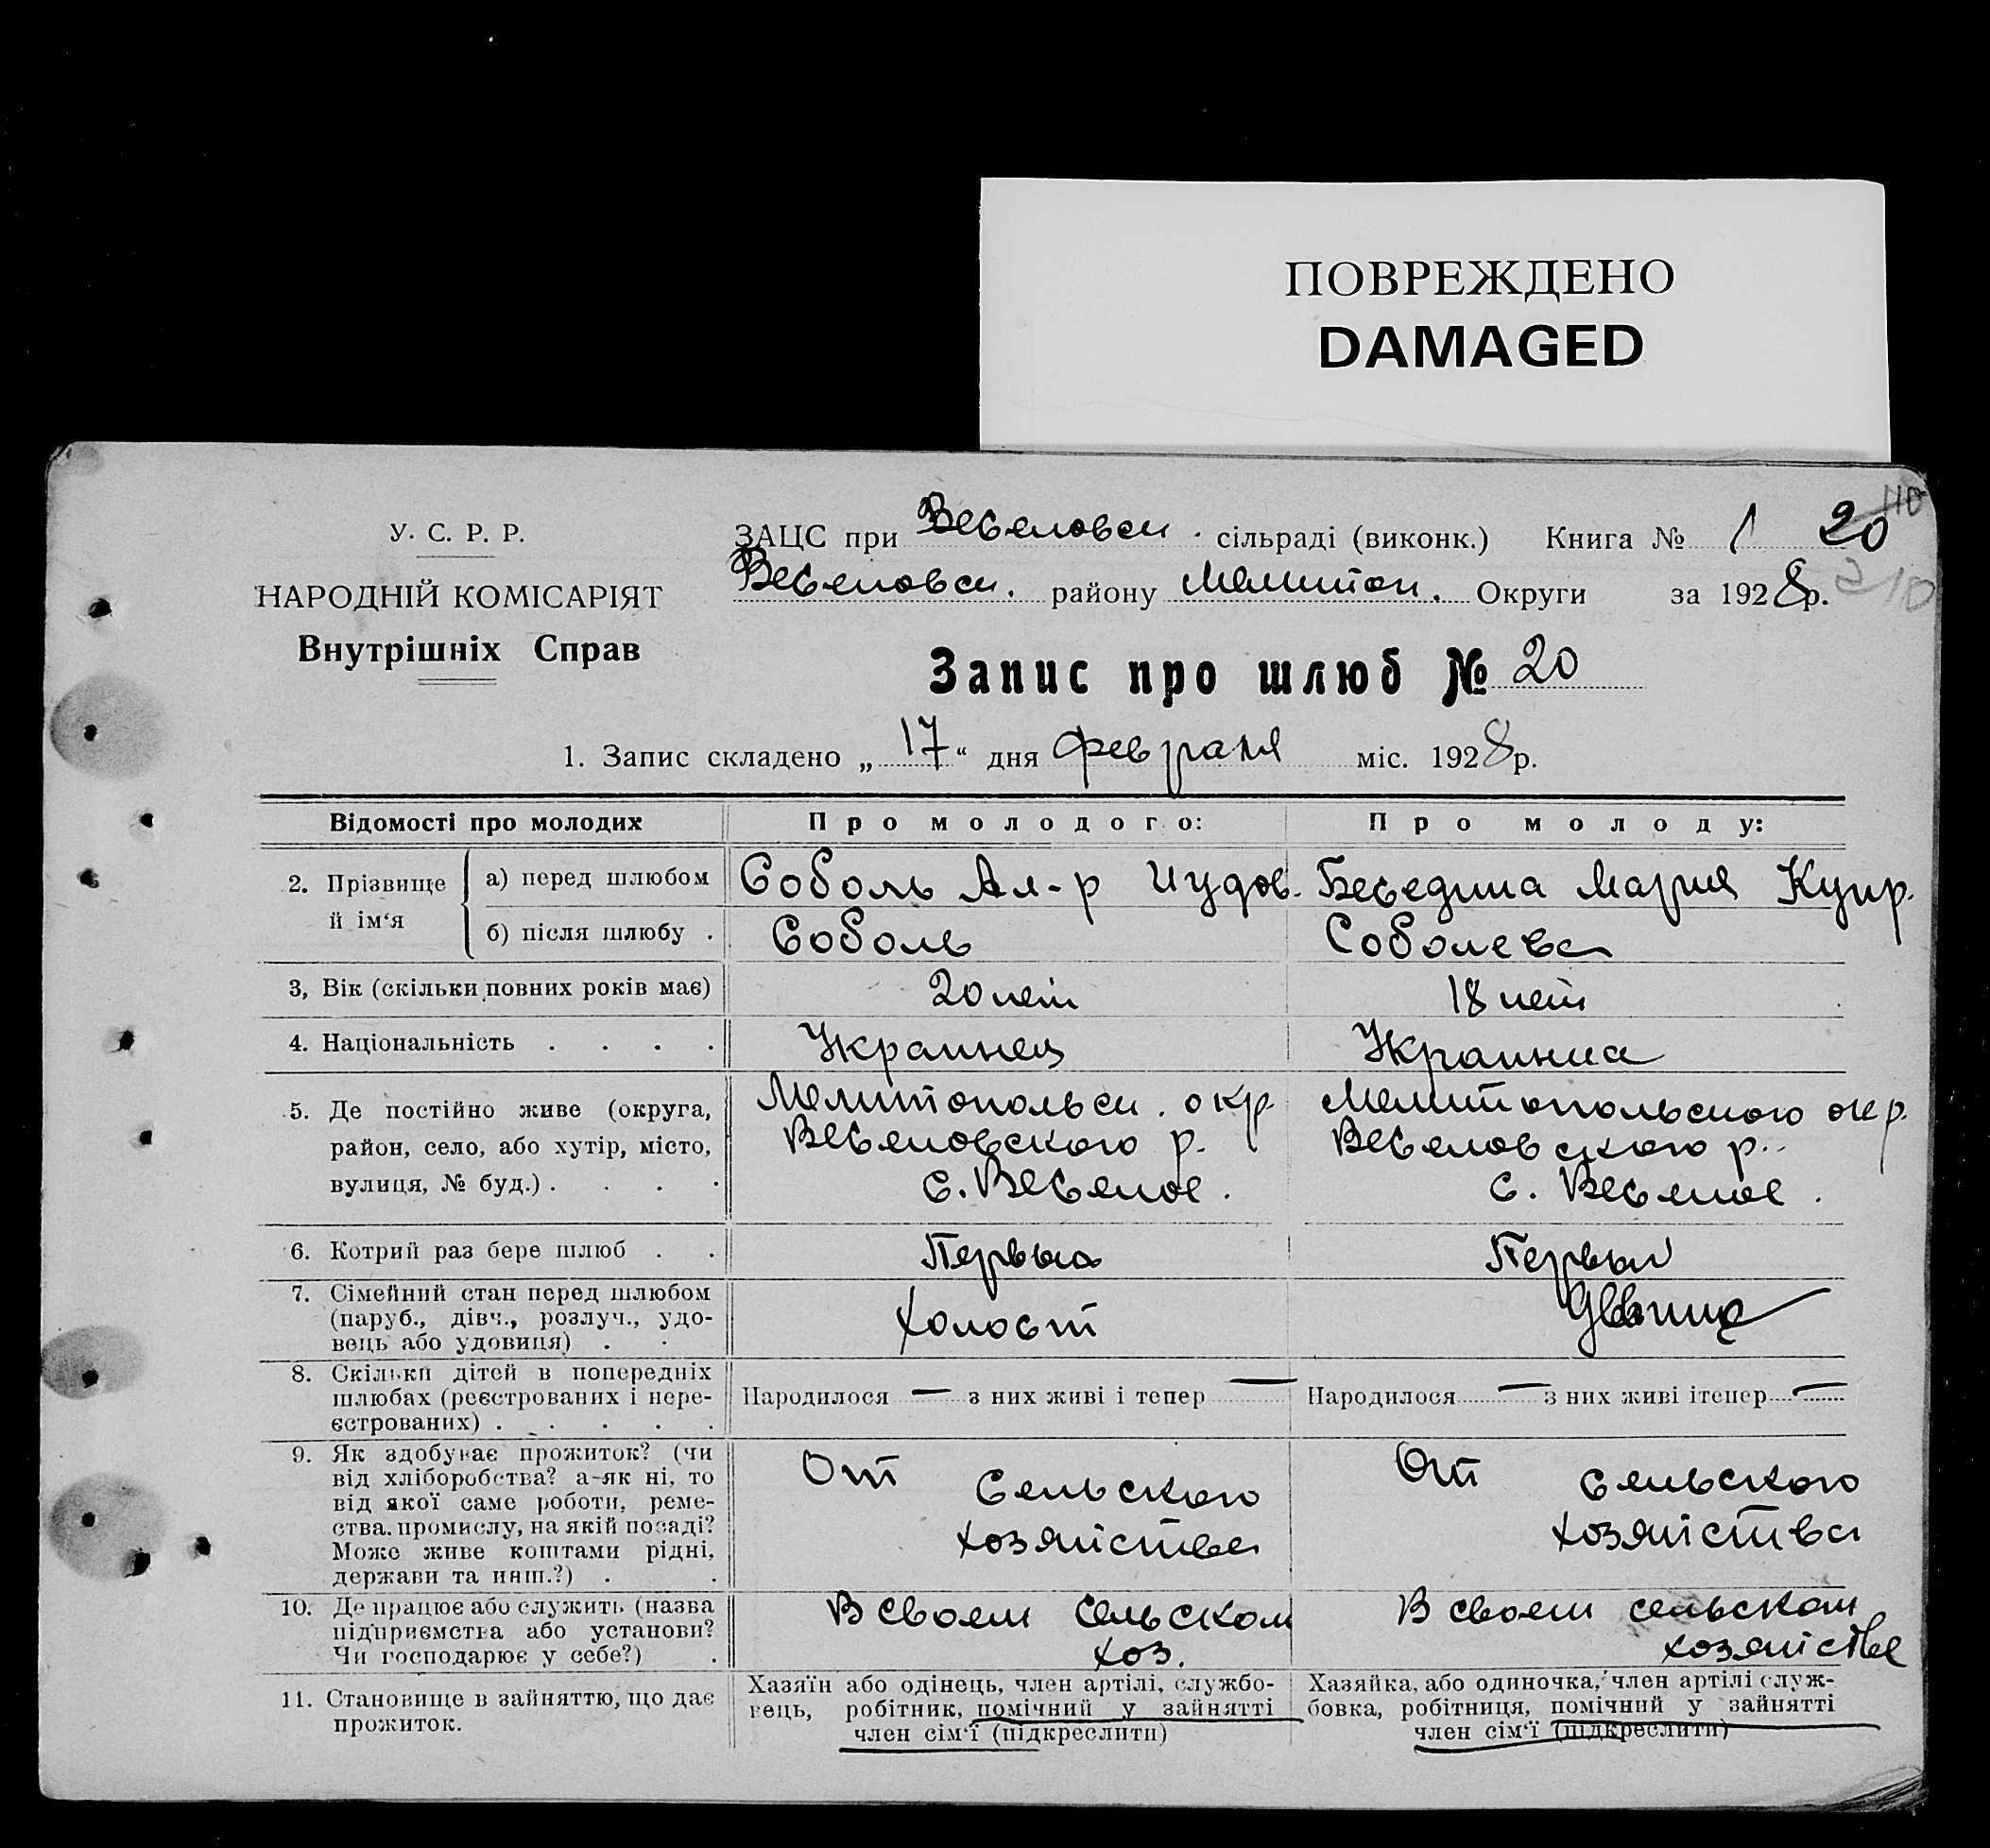 ПОВРЕЖДЕНО
DAMAGED
110
У. С. Р. Р.
НАРОДНІЙ КОМІСАРІЯТ
Внутрішніх Справ
ЗАЦС при Веселовск. сільраді (виконк.) Книга № 1 20
Веселовск. району Мелитоп. Округи за 1928 р. 210
Запис про шлюб № 20
1. Запис складено „17“ дня февраля міс. 1928 р.
Відомості про молодих
Про молодого:
Про молоду:
2. Прізвище й ім‘я
а) перед шлюбом
Соболь Ал-р Иудов.
Беседина Мария Купр.
б) після шлюбу .
Соболь
Соболева
3, Вік (скільки повних років має)
20 лет
18 лет
4. Національність . . . .
Украинец
Украинка
5. Де постійно живе (округа,
район, село, або хутір, місто,
вулиця, № буд.) . . . .
Мелитопольск. окр.
Веселовского р.
с. Веселое.
Мелитопольского окр.
Веселовского р.
с. Веселое.
6. Котрий раз бере шлюб . .
Первый
Первый
7. Сімейний стан перед шлюбом
(паруб., дівч., розлуч., удо-
вець або удовиця) . .
Холост
Девица
8. Скільки дітей в попередніх
шлюбах (реєстрованих і нере-
єстрованих) . . . . .
Народилося — з них живі і тепер —
Народилося — з них живі ітепер —
9. Як здобуває прожиток? (чи
від хліборобства? а-як ні, то
від якої саме роботи, реме-
ства, промислу, на якій посаді?
Може живе коштами рідні,
держави та инш.?) . .
От сельского
хозяйства
От сельского
хозяйства
10. Де працює або служить (назва
підприємства або установи?
Чи господарює у себе?) .
В своем сельском
хоз.
В своем сельском
хозяйстве
11. Становище в зайняттю, що дає
прожиток.
Хазяїн або одінець, член артілі, службо-
вець, робітник, помічний у зайнятті
член сім‘ї (підкреслити)
Хазяйка, або одиночка, член артілі служ-
бовка, робітниця, помічний у зайнятті
член сім‘ї (підкреслити)